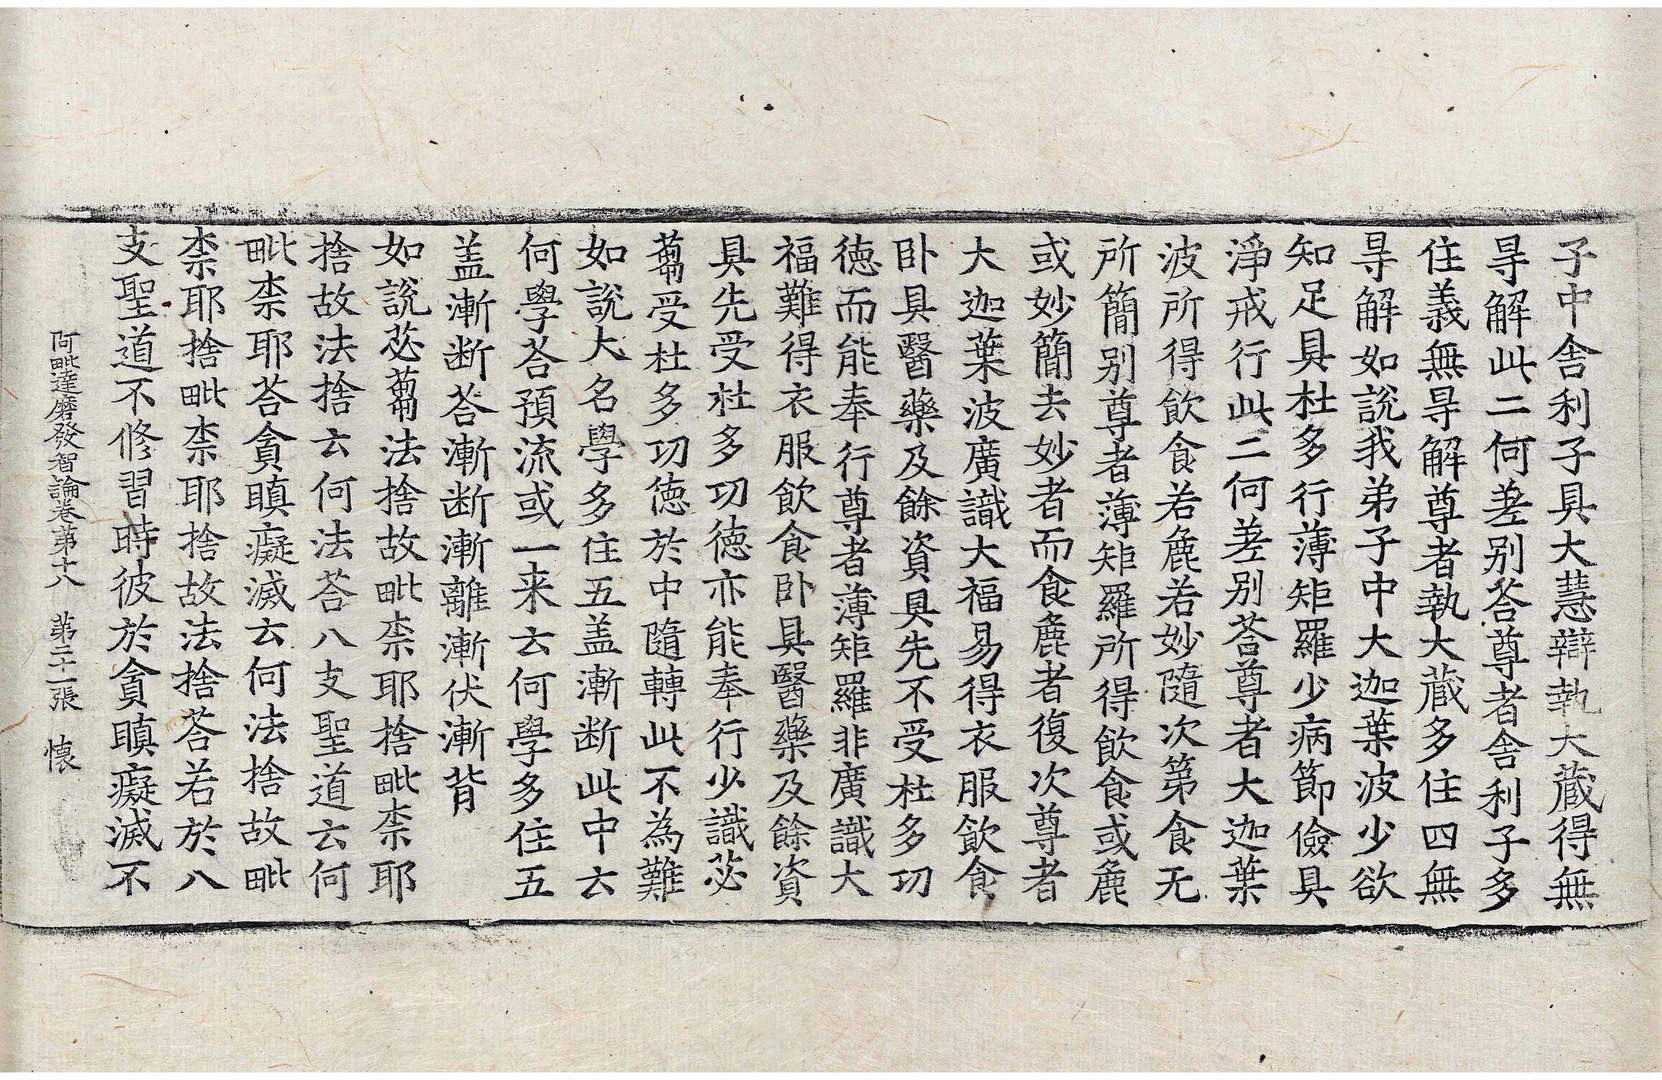 子中舎利子具大慧辯執大蔵得無
㝵解此二何差别荅尊者舎利子多
住義無㝵解尊者執大蔵多住四無
㝵解如說我弟子中大迦葉波少欲
知足具杜多行薄矩羅少病節儉具
淨戒行此二何差别荅尊者大迦葉
波所得飲食若麁若妙隨次第食无
所簡别尊者薄矩羅所得飲食或麁
或妙簡去妙者而食麁者復次尊者
大迦葉波廣識大福易得衣服飲食
卧具醫藥及餘資具先不受杜多功
徳而能奉行尊者薄矩羅非廣識大
福難得衣服飲食卧具醫藥及餘資
具先受杜多功徳亦能奉行少識苾
蒭受杜多功徳於中隨轉此不為難
如說大名學多住五盖漸断此中云
何學荅預流或一来云何學多住五
盖漸断荅漸断漸離漸伏漸背
如說苾蒭法捨故毗柰耶捨毗柰耶
捨故法捨云何法荅八支聖道云何
毗柰耶荅貪瞋癡滅云何法捨故毗
柰耶捨毗柰耶捨故法捨荅若於八
支聖道不修習時彼於貪瞋癡滅不
阿毗達磨發智論卷第十八 第二十一張 懷